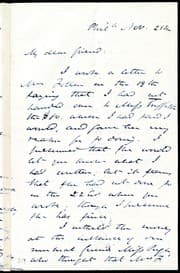 Phil^a Nov. 21st
My dear friend.
I wrote a letter to
Mrs. on the 19th
saying that I had not
handed over to Miss
the $10. which I had said I
would, and gave her my
reason for so doing.
presumed that she would
let you know what I
had written, but it seems
that she had not done so
on the 22nd when you
wrote, though I presume
she has since.
I withheld the money
at the instance of my
mutual friend Miss
who thought that